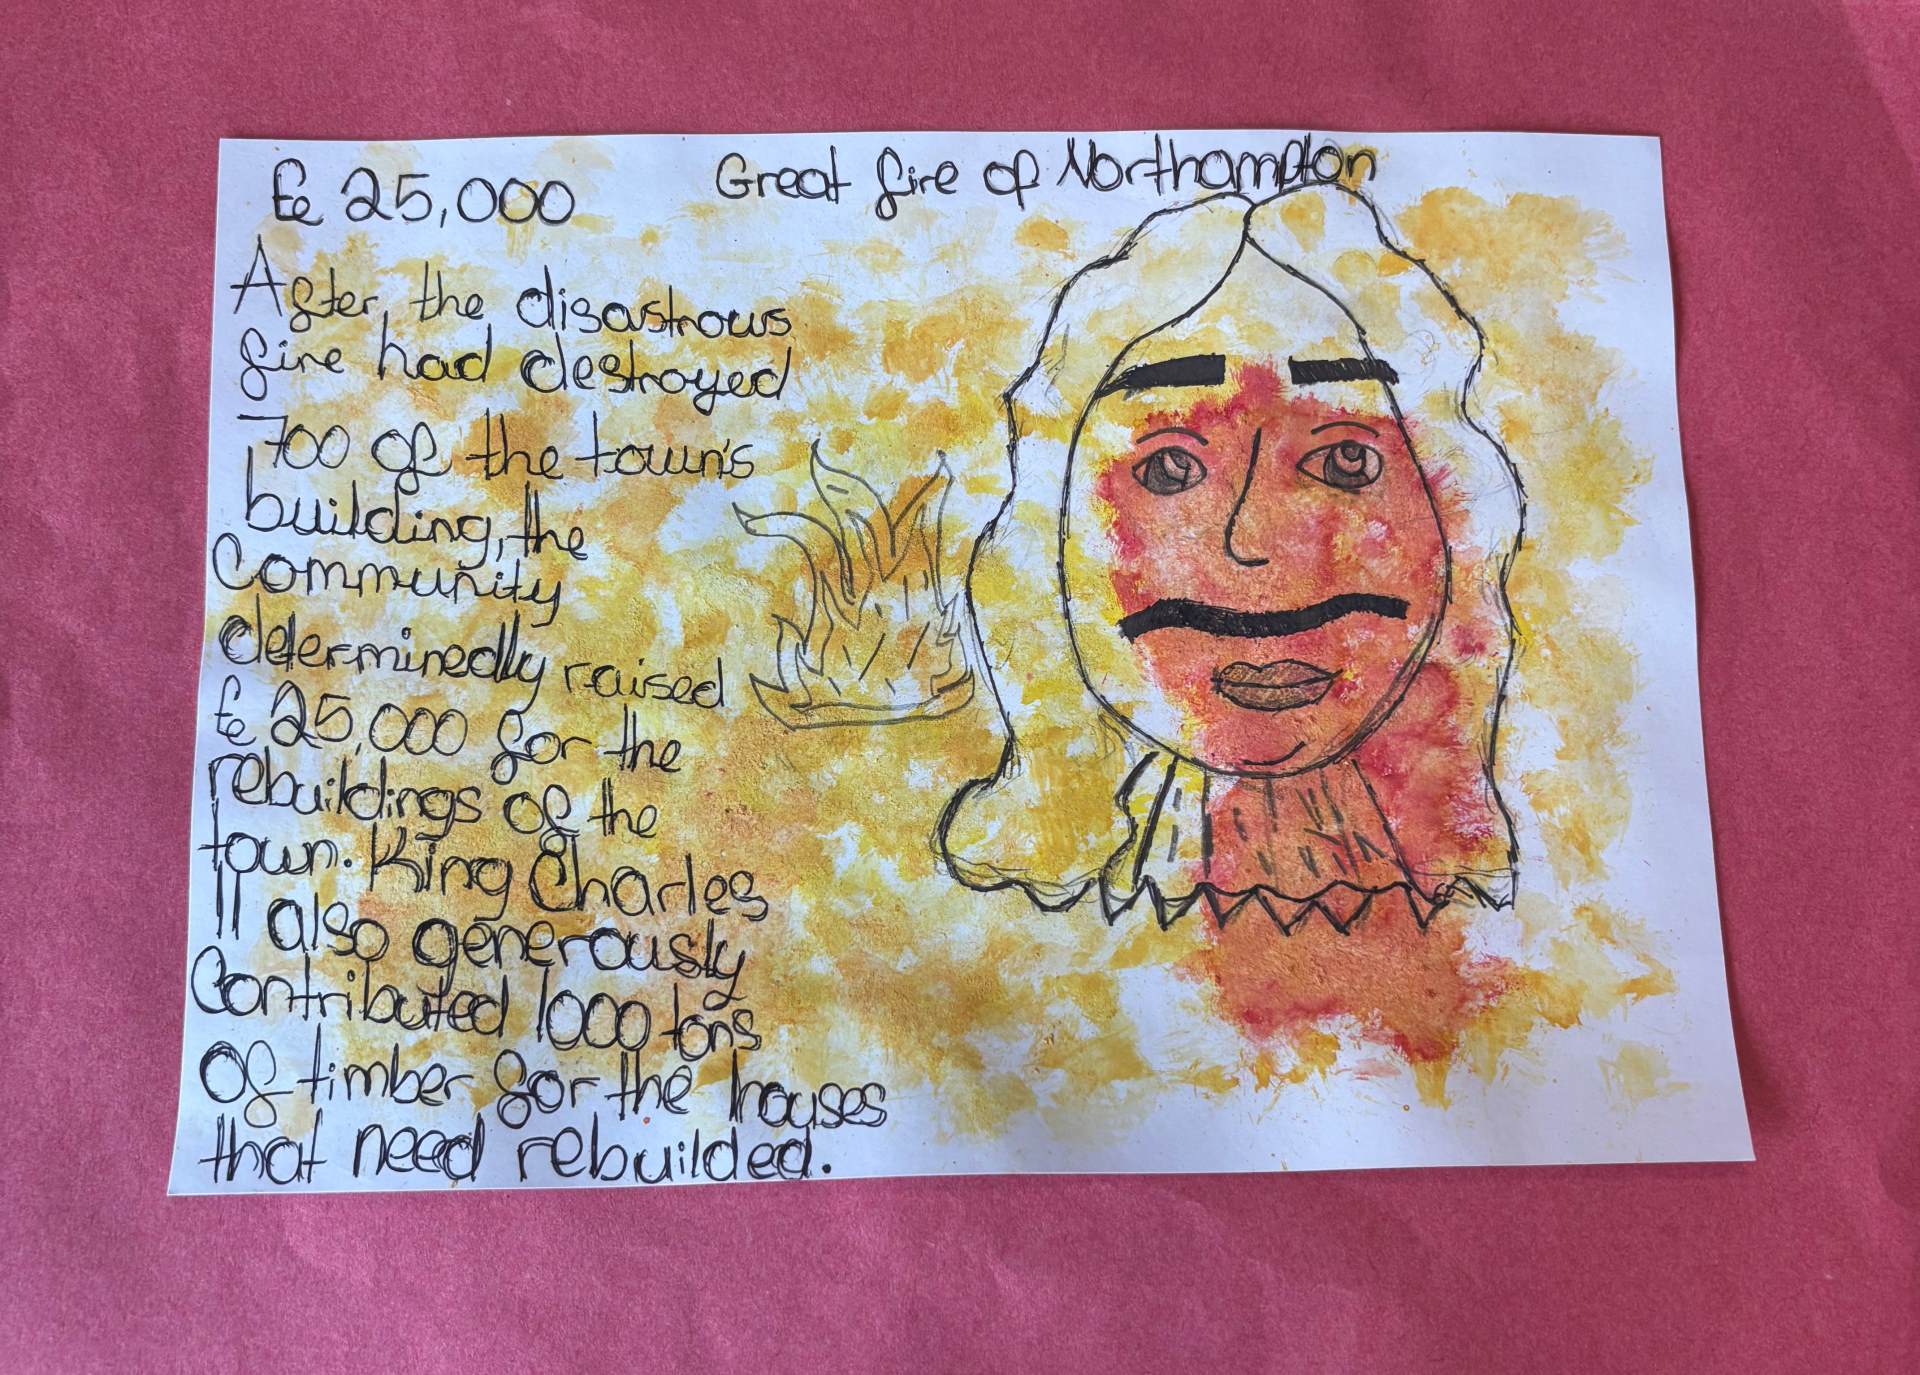 £ 25,000
Great fire of Northampton
After, the disastrous
fire had destroyed
700 of the town's
building, the
Community
determinedly raised
£ 25,000 for the
rebuildings of the
town. King Charles
II also generously
Contributed 1000 tons
Of timber for the houses
that need rebuilded.